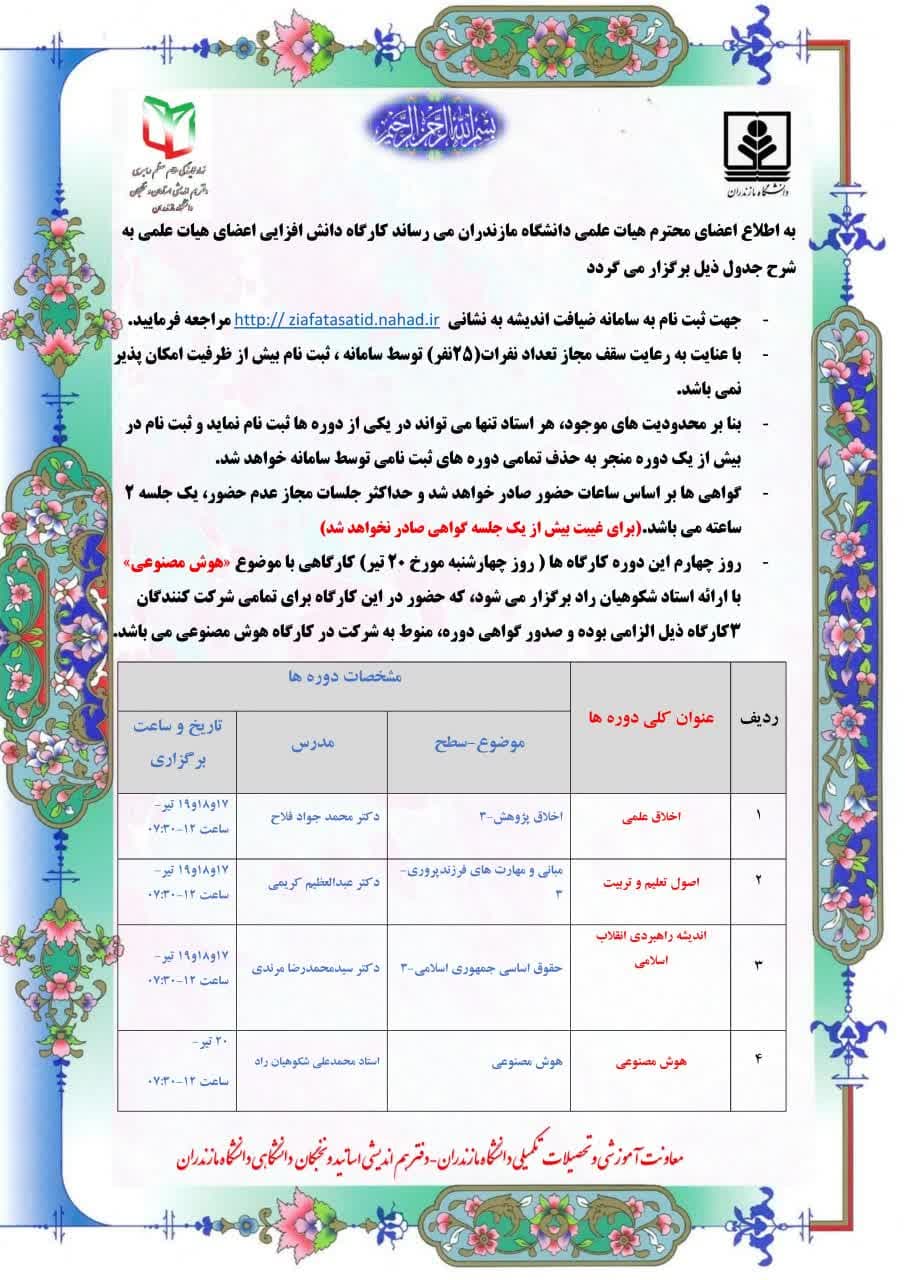 بسم الله الرحمن الرحیم
دانشگاه مازندران
نهاد نمایندگی مقام معظم رهبری
دفتر هم اندیشی استادان و نخبگان
دانشگاه مازندران
به اطلاع اعضای محترم هیات علمی دانشگاه مازندران می رساند کارگاه دانش افزایی اعضای هیات علمی به
شرح جدول ذیل برگزار می گردد
- جهت ثبت نام به سامانه ضیافت اندیشه به نشانی http:// ziafatasatid.nahad.ir مراجعه فرمایید.
- با عنایت به رعایت سقف مجاز تعداد نفرات(۲۵نفر) توسط سامانه ، ثبت نام بیش از ظرفیت امکان پذیر
نمی باشد.
- بنا بر محدودیت های موجود، هر استاد تنها می تواند در یکی از دوره ها ثبت نام نماید و ثبت نام در
بیش از یک دوره منجر به حذف تمامی دوره های ثبت نامی توسط سامانه خواهد شد.
- گواهی ها بر اساس ساعات حضور صادر خواهد شد و حداکثر جلسات مجاز عدم حضور، یک جلسه ۲
ساعته می باشد.(برای غیبت بیش از یک جلسه گواهی صادر نخواهد شد)
- روز چهارم این دوره کارگاه ها ( روز چهارشنبه مورخ ۲۰ تیر) کارگاهی با موضوع «هوش مصنوعی»
با ارائه استاد شکوهیان راد برگزار می شود، که حضور در این کارگاه برای تمامی شرکت کنندگان
۳کارگاه ذیل الزامی بوده و صدور گواهی دوره، منوط به شرکت در کارگاه هوش مصنوعی می باشد.
ردیف
عنوان کلی دوره ها
مشخصات دوره ها
موضوع-سطح
مدرس
تاریخ و ساعت
برگزاری
۱
اخلاق علمی
اخلاق پژوهش-۳
دکتر محمد جواد فلاح
۱۷و۱۸و۱۹ تیر-
ساعت ۱۲-۰۷:۳۰
۲
اصول تعلیم و تربیت
مبانی و مهارت های فرزندپروری-
۳
دکتر عبدالعظیم کریمی
۱۷و۱۸و۱۹ تیر-
ساعت ۱۲-۰۷:۳۰
۳
اندیشه راهبردی انقلاب
اسلامی
حقوق اساسی جمهوری اسلامی-۳
دکتر سیدمحمدرضا مرندی
۱۷و۱۸و۱۹ تیر-
ساعت ۱۲-۰۷:۳۰
۴
هوش مصنوعی
هوش مصنوعی
استاد محمدعلی شکوهیان راد
۲۰ تیر-
ساعت ۱۲-۰۷:۳۰
معاونت آموزشی و تحصیلات تکمیلی دانشگاه مازندران-دفتر هم اندیشی اساتید و نخبگان دانشگاهی دانشگاه مازندران